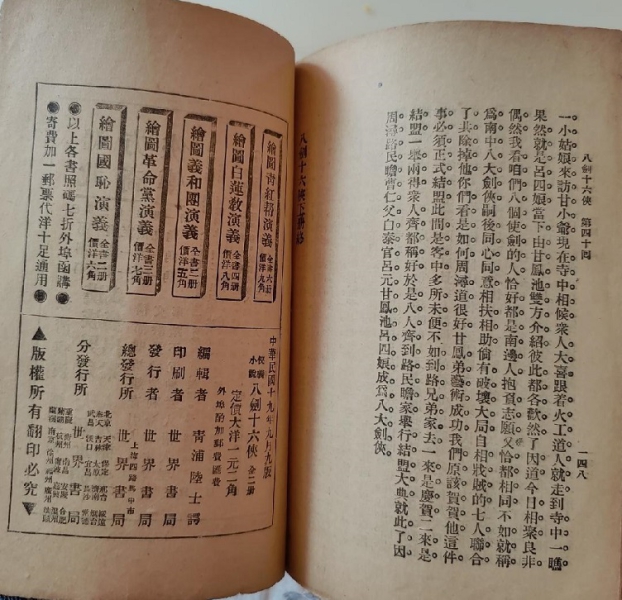 八劍十六俠　第四十回
一四八
一小姑娘來訪甘小爺現在寺中相候衆人大喜跟着火工道人就走到寺中一瞧
果然就是呂四娘當下由甘鳳池雙方介紹彼此都各歡然了因道今日相聚良非
偶然我看咱們八個使劍的人恰好都是南邊人抱負志願又恰都相同不如就稱
爲南中八大劍俠嗣後同心同意相扶相助倘有破壞大局自相戕賊的七人聯合
了共除掉他你們看是如何周潯道很好甘鳳弟藝術成功我們原該賀賀他這件
事必須正式結盟此間是客中多所未便不如到路兄弟家去一來是慶賀二來是
結盟一舉兩得衆人齊都稱好於是八人齊到路民瞻家舉行結盟大典就此了因
周潯路民瞻曹仁父白泰官呂元甘鳳池呂四娘成爲八大劍俠。
八劍十六俠
繪圖青紅幫演義
價洋九角
繪圖白蓮教演義 全書四册 價洋八角
繪圖義和團演義 全書二册 價洋五角
繪圖革命黨演義 全書三册 價洋七角
繪圖國恥演義 全書二册 價洋六角
●以上各書照碼七折外埠函購●
●寄費加一郵票代洋十足通用●
中華民國十九年九月九版
小說 八劍十六俠 全二册
定價大洋一元二角
外埠酌加郵費匯費
編輯者 青浦陸士諤
印刷者 世界書局
發行者 世界書局
總發行所 上海四路 世界書局
分發行所 世界書局
▲版權所有翻印必究▼